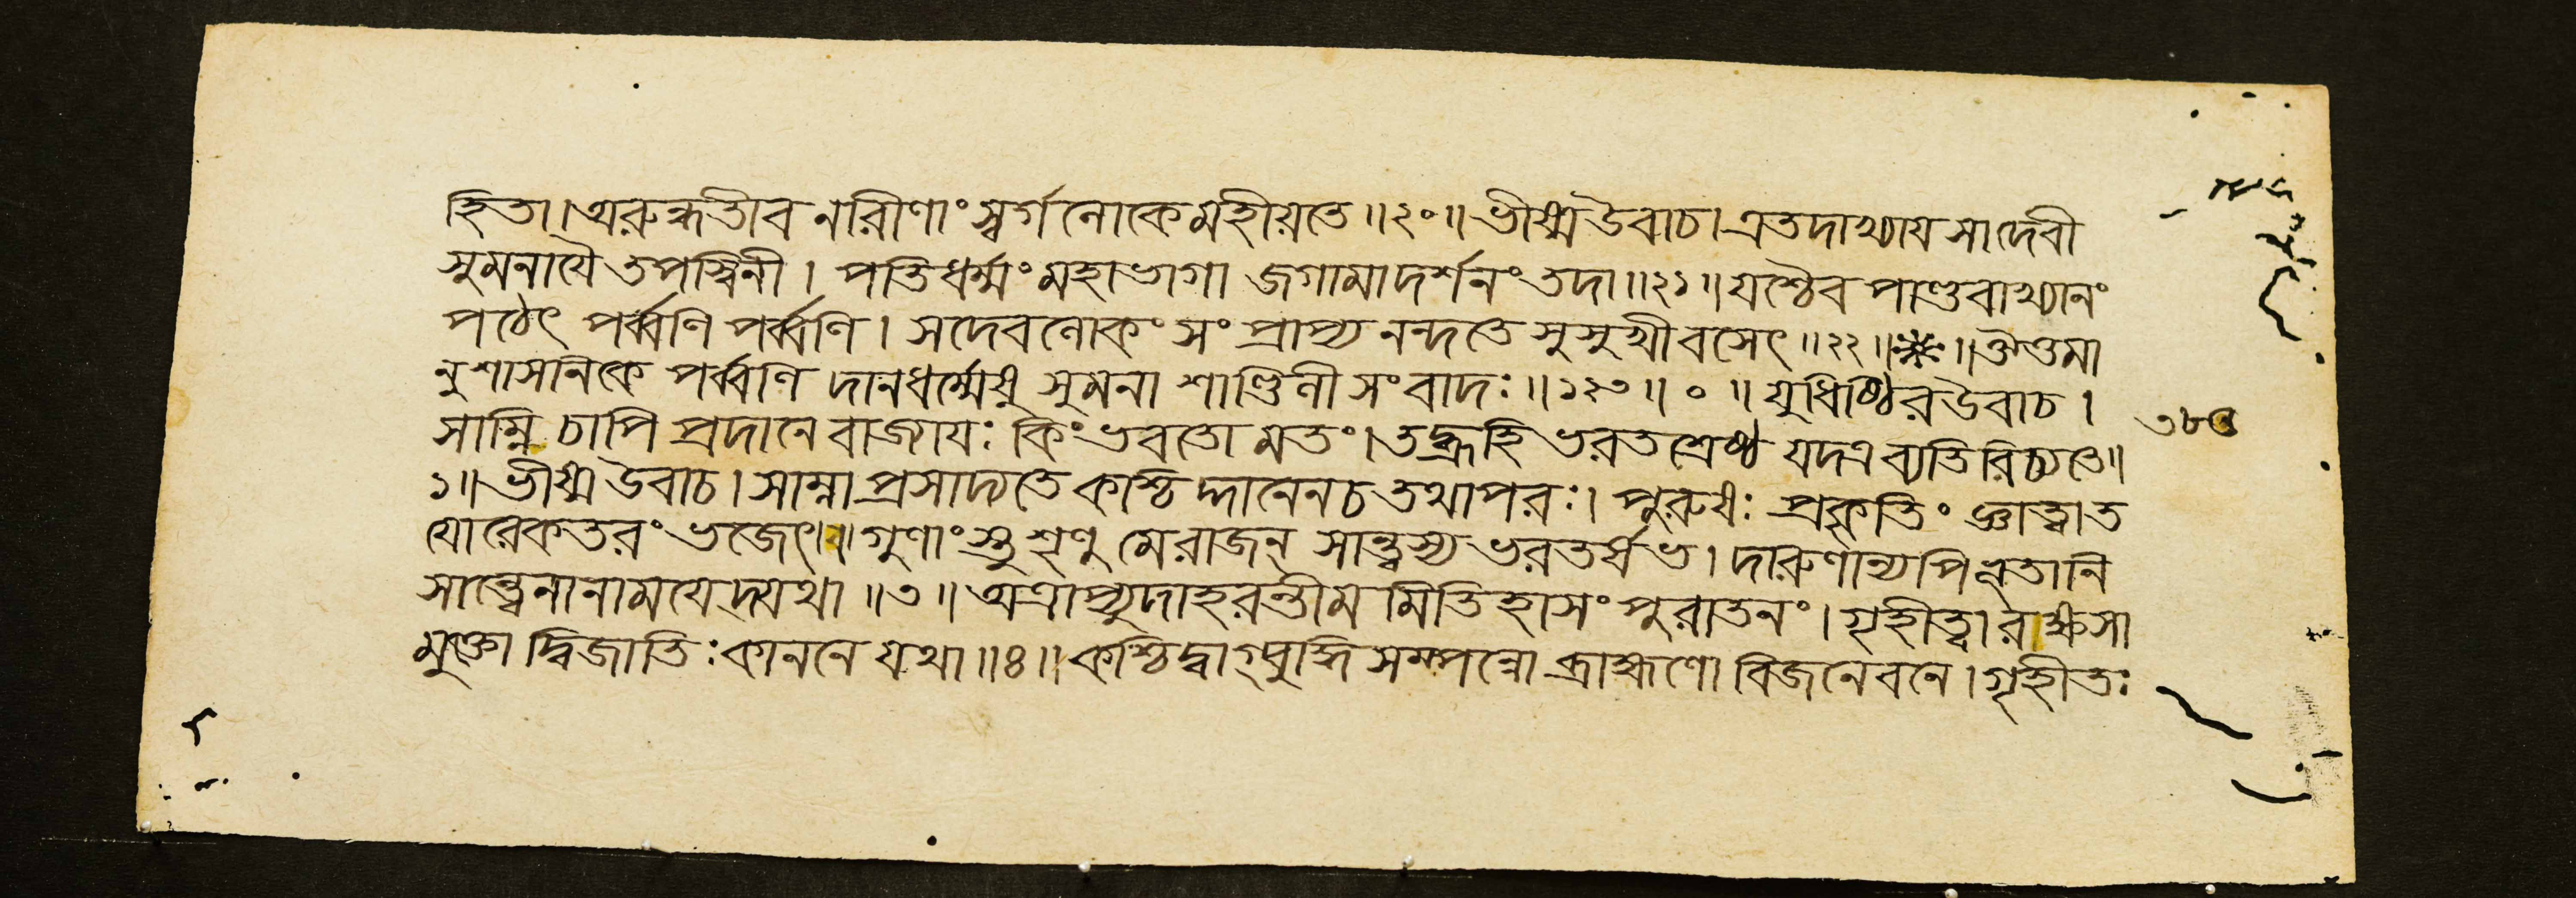 হিতা।অরুন্ধতীব নারীণাং স্বর্গলোকে মহীয়তে॥২০॥ভীষ্মউবাচ।এতদাখ্যায সাদেবী
সুমনাযৈ তপস্বিনী। পতিধর্ম্মং মহাভাগা জগামাদর্শনং তদা॥২১॥যশ্চৈব পাণ্ডবাখ্যানং
পঠেৎ পর্ব্বণি পর্ব্বণি। সদেবলোকং সংপ্রাপ্য নন্দতে সুসুখীবসেৎ॥২২॥❋॥ঐত্তমা
নুশাসনিকে পর্ব্বণি দানধর্ম্মেষু সুমনা শাণ্ডিলী সংবাদঃ॥১২৩॥০॥যুধিষ্ঠিরউবাচ।
সাম্নি চাপি প্রদানে বাজাযঃ কিংভবতো মতং।তদ্ব্রূহি ভরতশ্রেষ্ঠ যদত্র ব্যতিরিচ্যতে॥
১॥ভীষ্ম উবাচ।সাম্না প্রসাদ্যতে কশ্চিদ্দানেনচ তথাপরঃ। পুরুষঃ প্রকৃতিং জ্ঞাত্বাত
যোরেকতরং ভজেৎ॥২॥গুণাংস্তু শৃণু মেরাজন্ সান্ত্বস্য ভরতর্ষভ।দারুণান্যপিভূতানি
সান্ত্বেনানামযেদ্যথা॥৩॥অত্রাপ্যুদাহরন্তীম মিতিহাসং পুরাতনং।গৃহীত্বা রাক্ষসা
মুক্তো দ্বিজাতিঃকাননে যথা॥৪॥কশ্চিদ্বাগ্বুদ্ধি সম্পন্নো ব্রাহ্মণো বিজনেবনে।গৃহীতঃ
৩৮৫